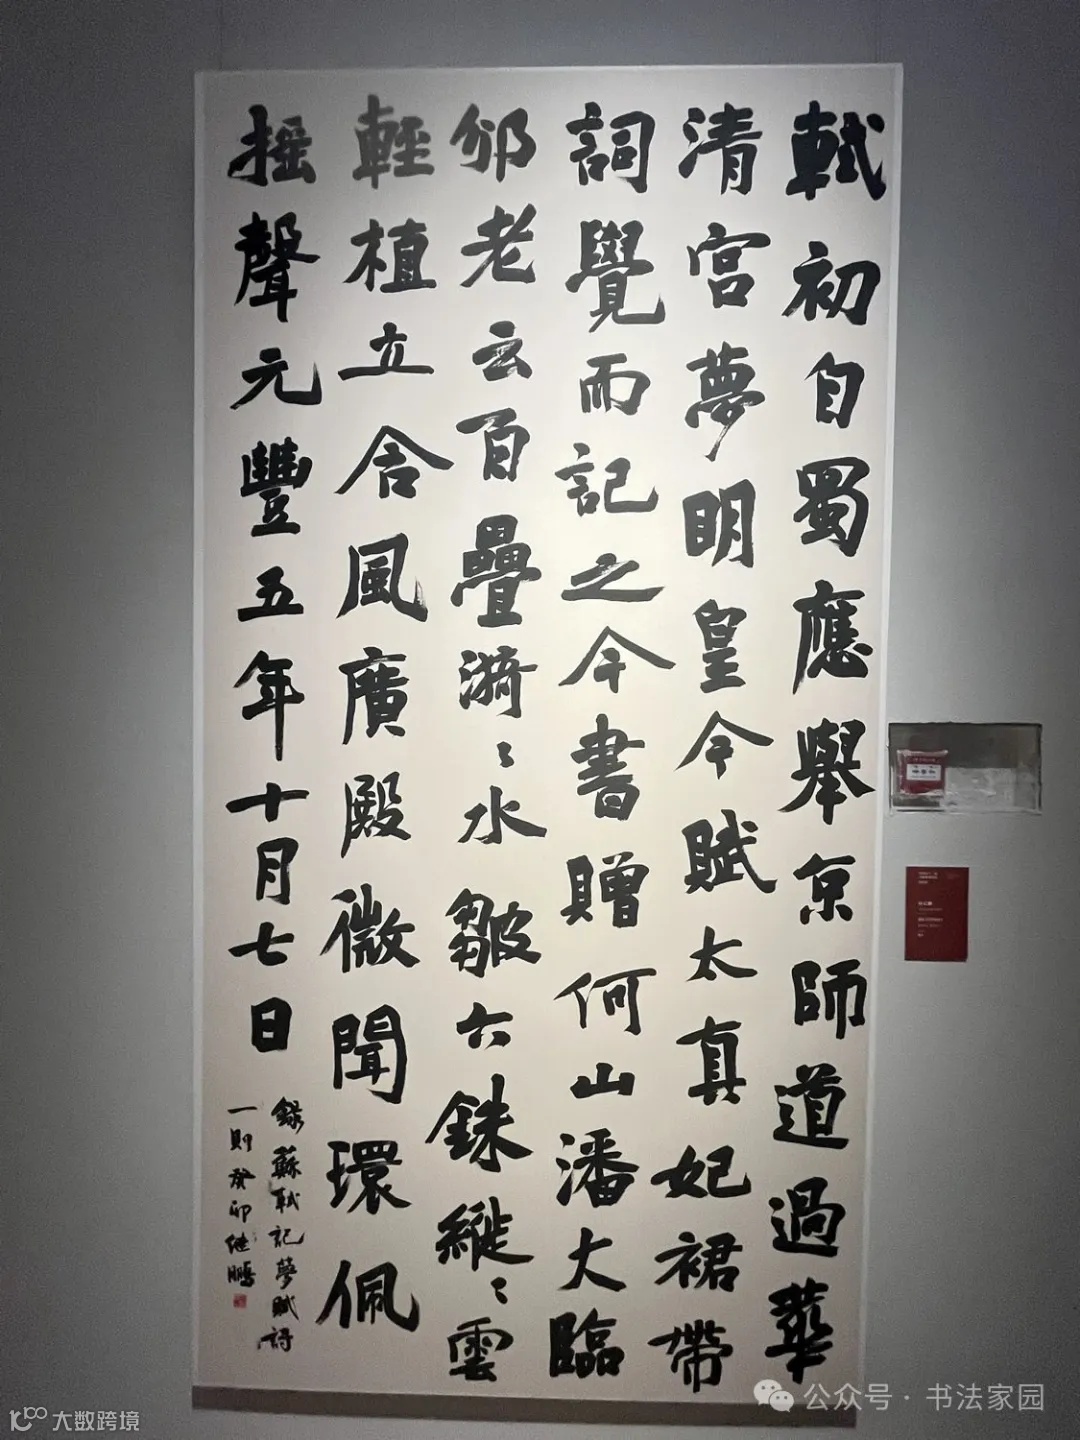 軾初自蜀應舉京師道過華
清宫夢明皇令賦太真妃裙帶
詞覺而記之今書贈何山潘大臨
邠老云百疊漪〻水皺六銖縰〻雲
輕植立含風廣殿微聞環佩
摇聲元豐五年十月七日
錄蘇軾記夢賦詩
一則癸卯继鵬
公众号·书法家园
大数跨境